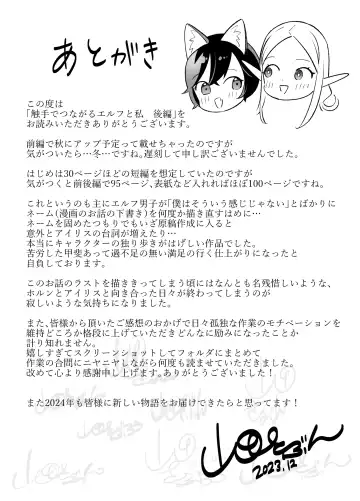 あとがき
この度は
「触手でつながるエルフと私　後編」を
お読みいただきありがとうございます。
前編で秋にアップ予定って載せちゃったのですが
気がついたら…冬…ですね。遅刻して申し訳ございませんでした。
はじめは30ページほどの短編を想定していたのですが
気がつくと前後編で95ページ、表紙など入れればほぼ100ページですね。
これというのも主にエルフ男子が「僕はそういう感じじゃない」とばかりに
ネーム(漫画のお話の下書き)を何度か描き直すはめに…
ネームを固めたつもりでもいざ原稿作成に入ると
意外とアイリスの台詞が増えたり…
本当にキャラクターの独り歩きがはげしい作品でした。
苦労した甲斐あって過不足の無い満足の行く仕上がりになったと
自負しております。
このお話のラストを描ききってしまう頃にはなんとも名残惜しいような、
ホルンとアイリスと向き合った日々が終わってしまうのが
寂しいような気持ちになりました。
また、皆様から頂いたご感想のおかげで日々孤独な作業のモチベーションを
維持どころか格段に上げていただきどんなに励みになったことか
計り知れません。
嬉しすぎてスクリーンショットしてフォルダにまとめて
作業の合間にニヤニヤしながら何度も読ませていただきました。
改めて心より感謝申し上げます。ありがとうございました！
また2024年も皆様に新しい物語をお届けできたらと思ってます！
2023.12